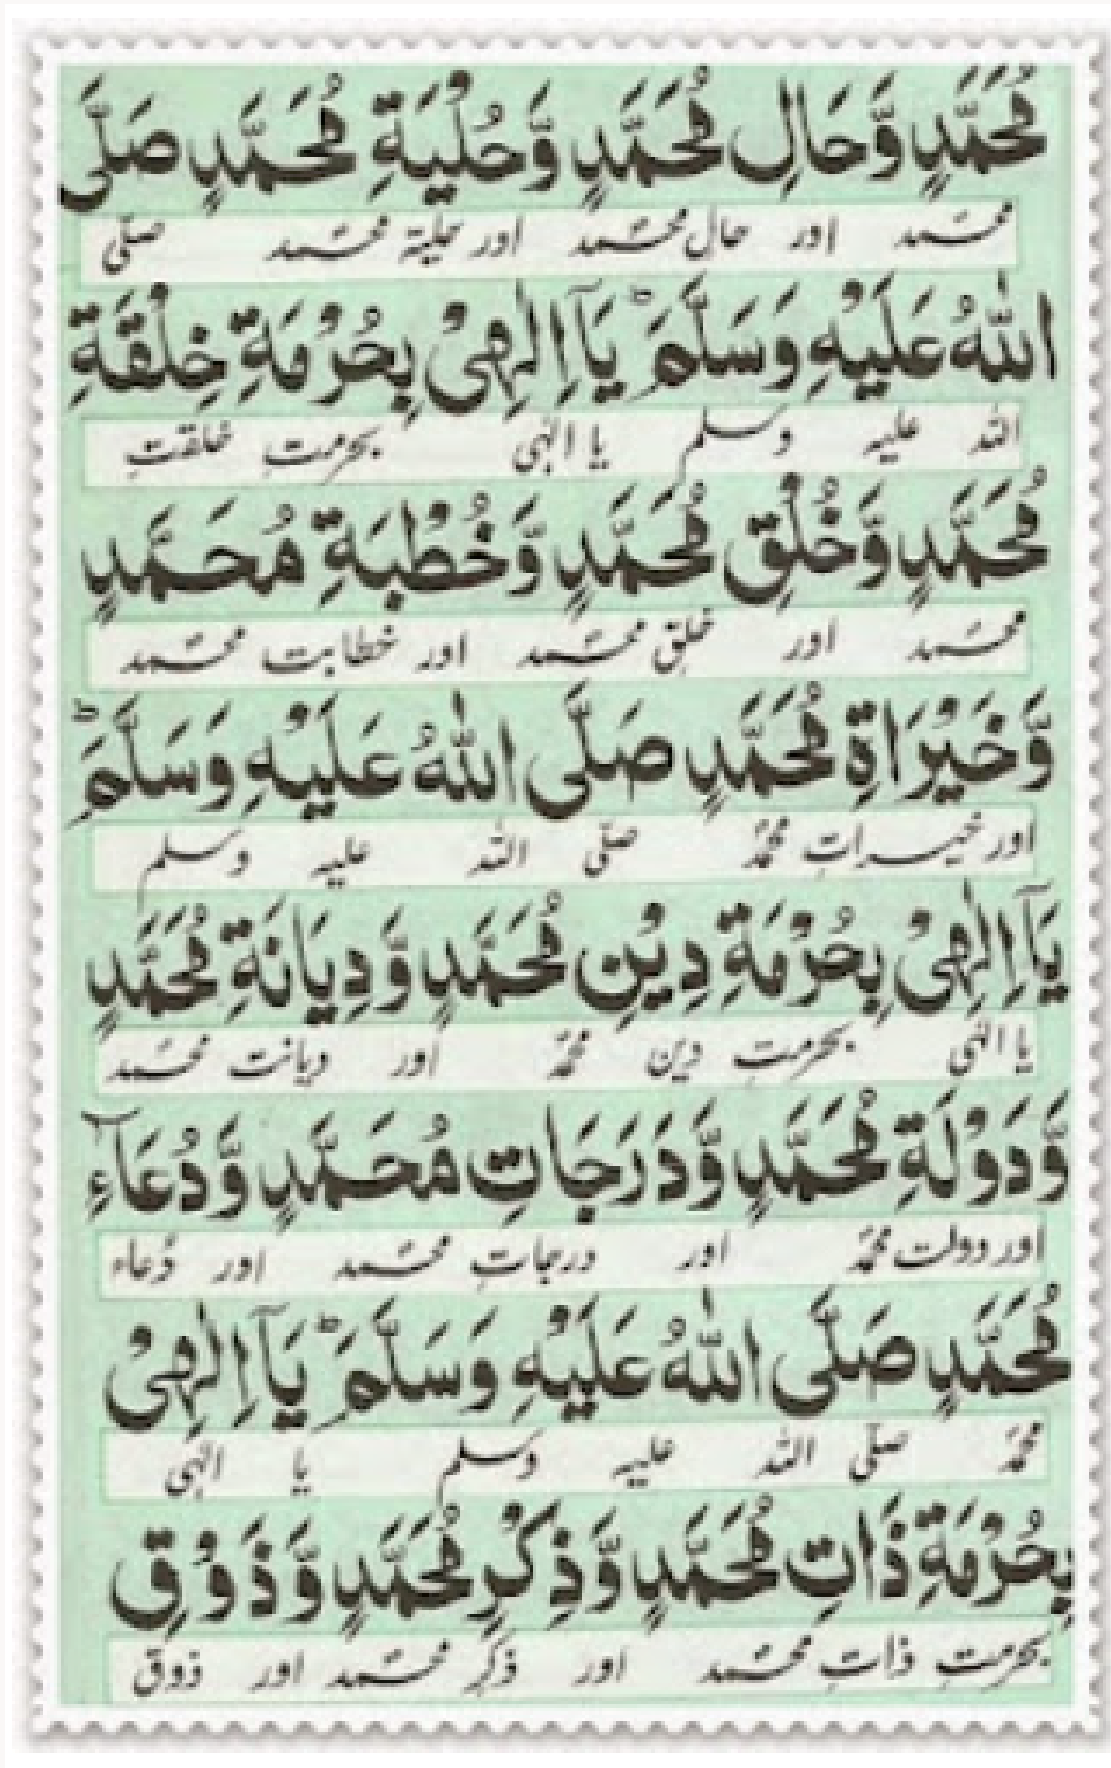 مُحَمَّدٍ وَّحَالِ مُحَمَّدٍ وَّحُلْيَةِ مُحَمَّدٍ صَلَّى
محمد اور حال محمد اور حلیۃ محمد صلّی
اللّٰهُ عَلَيْهِ وَسَلَّمَ ؕ يَآ اِلٰهِىْ بِحُرْمَةِ خِلْقَةِ
اللہ علیہ وسلم یا الٰہی بحرمتِ خلقتِ
مُحَمَّدٍ وَّخُلْقِ مُحَمَّدٍ وَّخُطْبَةِ مُحَمَّدٍ
محمد اور خلقِ محمد اور خطابت محمد
وَّخَيْرَاةِ مُحَمَّدٍ صَلَّى اللّٰهُ عَلَيْهِ وَسَلَّمَ ؕ
اور خیراتِ محمد صلّی اللہ علیہ وسلم
يَآ اِلٰهِىْ بِحُرْمَةِ دِيْنِ مُحَمَّدٍ وَّدِيَانَةِ مُحَمَّدٍ
یا الٰہی بحرمتِ دین محمد اور دیانت محمد
وَّدَوْلَةِ مُحَمَّدٍ وَّدَرَجَاتِ مُحَمَّدٍ وَّدُعَآءِ
اور دولت محمد اور درجاتِ محمد اور دُعاء
مُحَمَّدٍ صَلَّى اللّٰهُ عَلَيْهِ وَسَلَّمَ ؕ يَآ اِلٰهِىْ
محمد صلّی اللہ علیہ وسلم یا الٰہی
بِحُرْمَةِ ذَاتِ مُحَمَّدٍ وَّذِكْرِ مُحَمَّدٍ وَّذَوْقِ
بحرمتِ ذاتِ محمد اور ذکرِ محمد اور ذوق